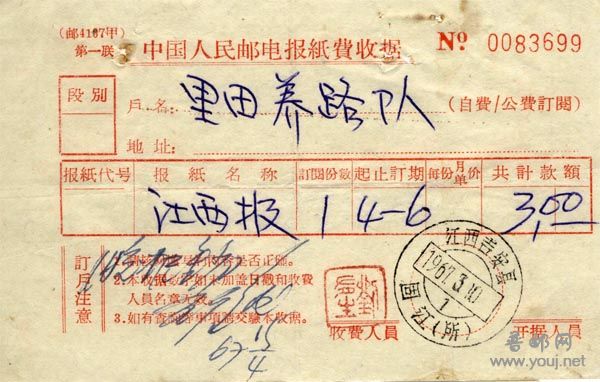 (邮4107甲)
第一联
中国人民邮电报紙費收据
Nº 0083699
段别
戶名: 里田养路队 (自費/公費訂閱)
地址:
报紙代号 报紙名称 訂閱份数 起止訂期 每份月单价 共計款額
江西报 1 4-6 3,00
訂戶注意
2.本收据 如未加盖日戳和收費
人员名章无效。
3.如有查詢等事項請交驗本收据。
67
4
收費人員
开据人員
江西吉安县
1967.3.10
1
(所)
善邮网
www.youj.net